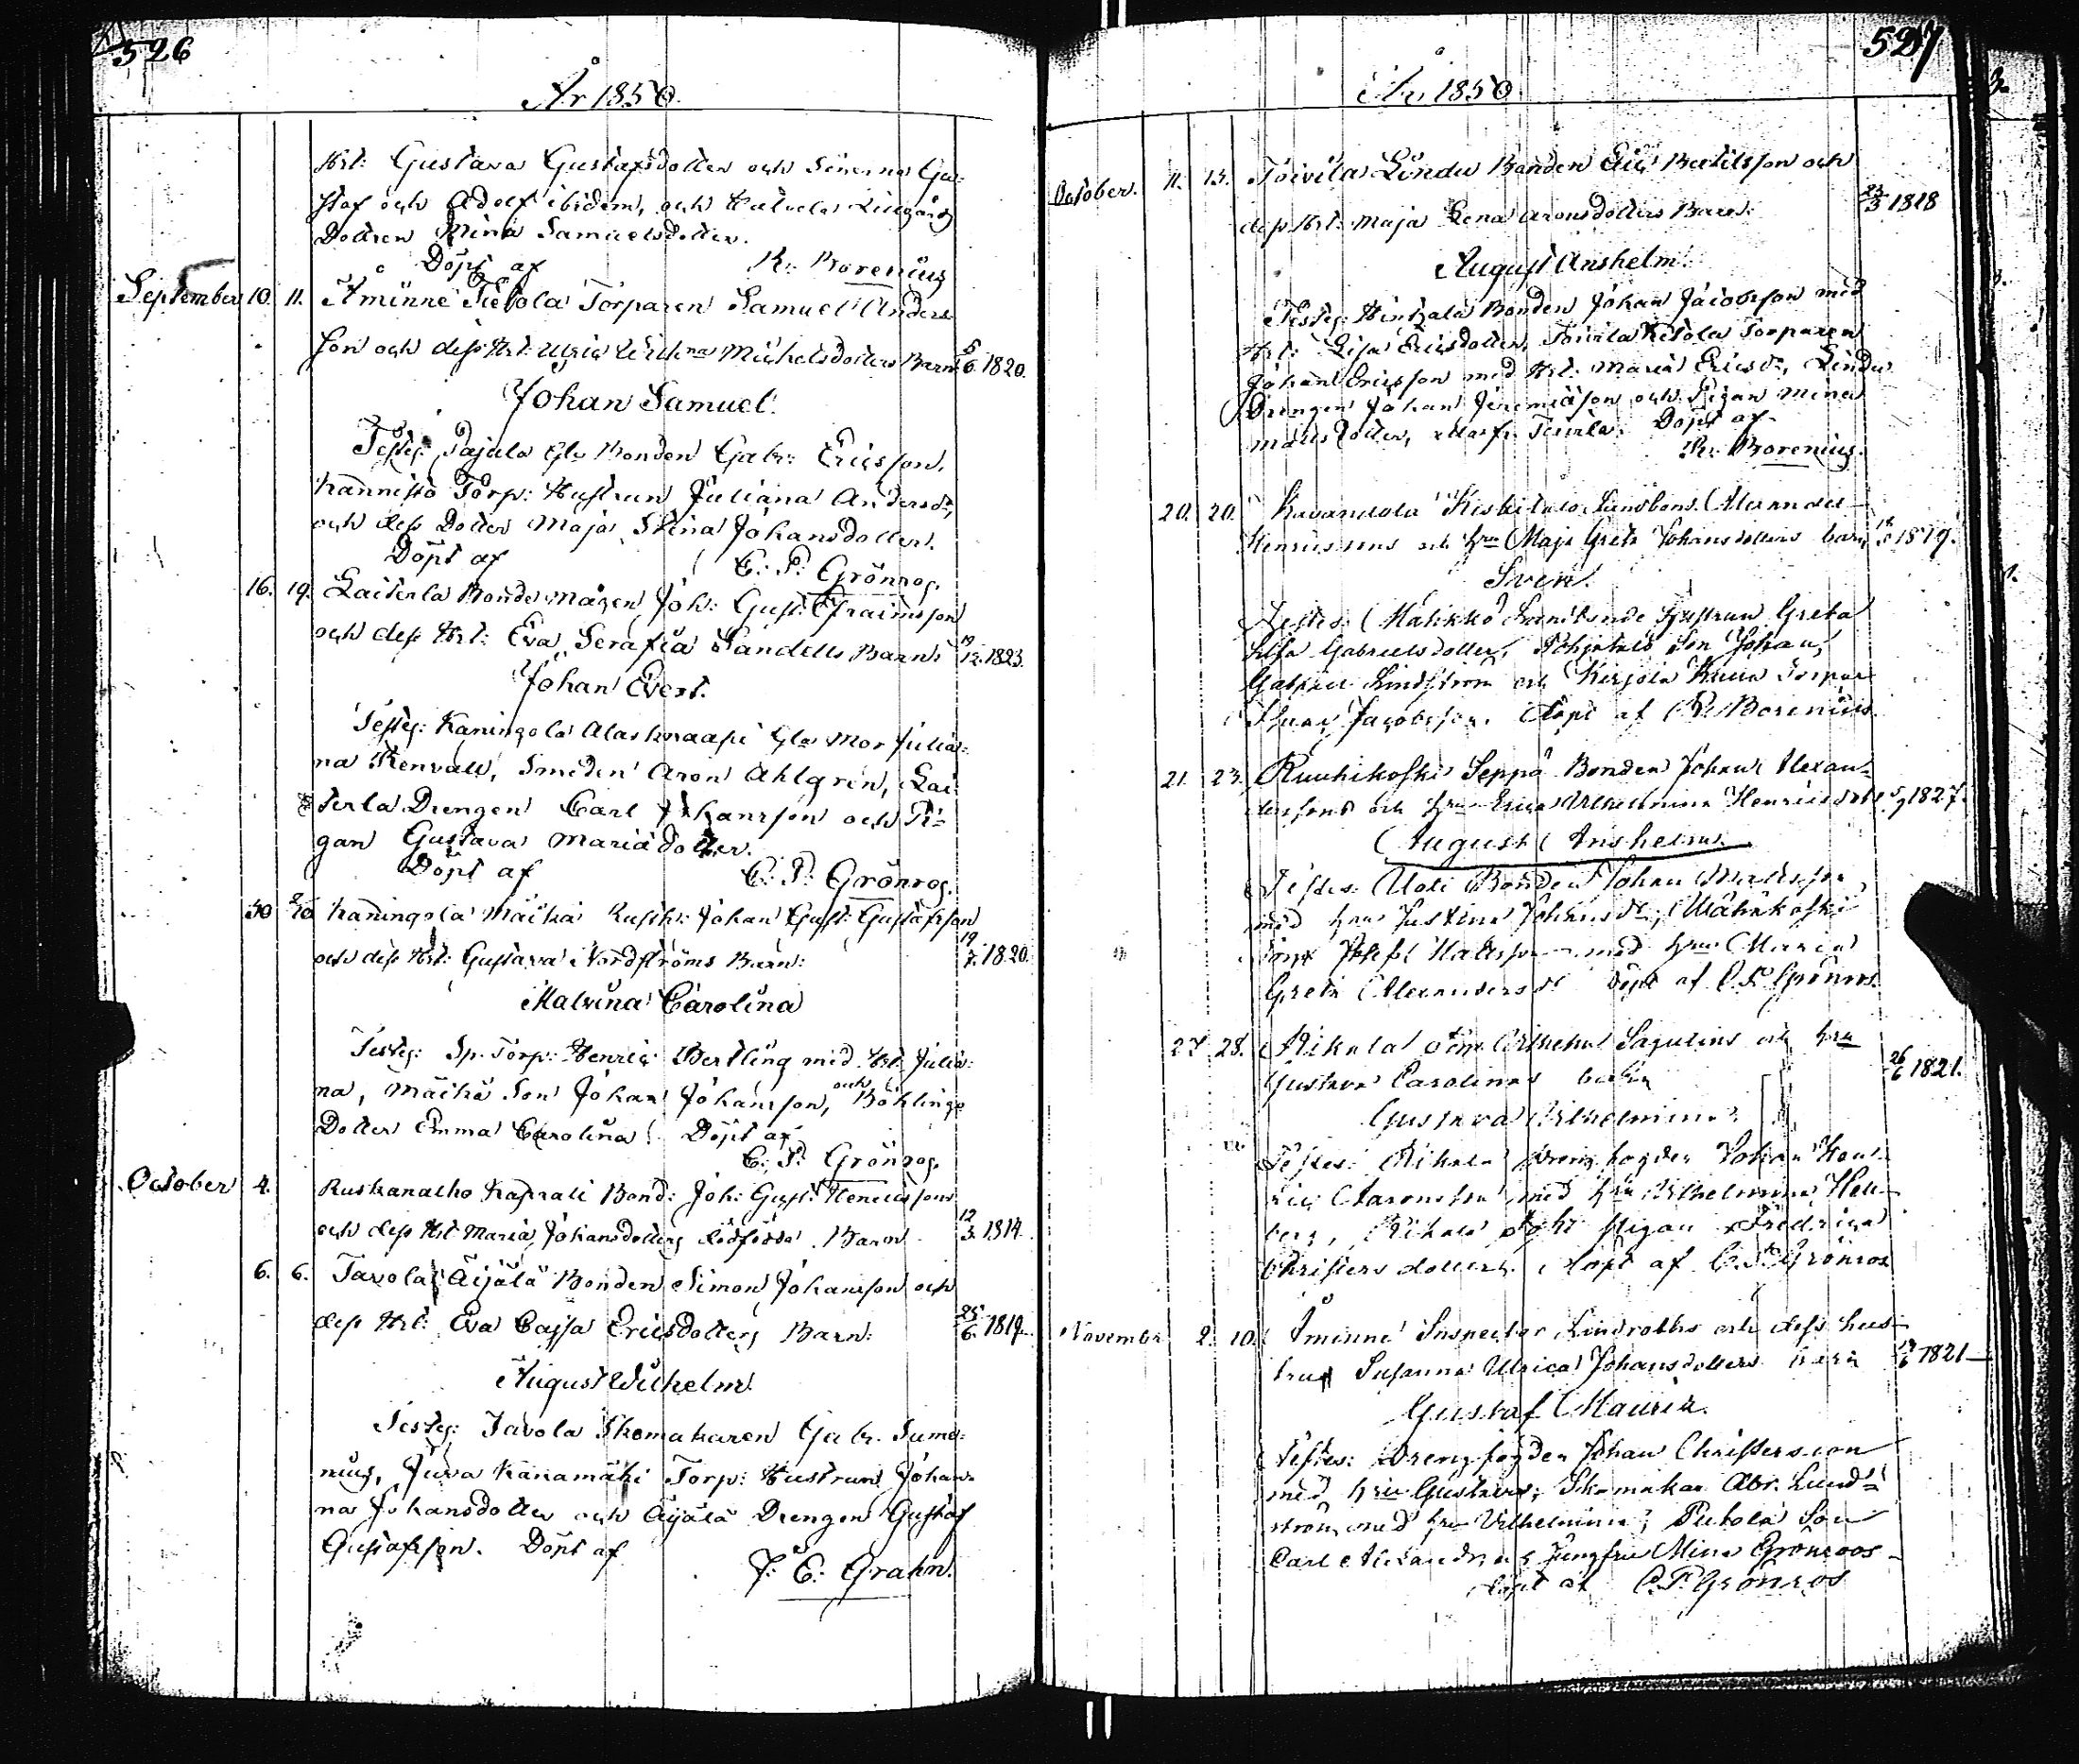 526
År 1850.
Hst: Gustava Gustafsdotter och Sönerna Gu=
staf och Adolf ibidem, och
Dottren Mina Samuelsdotter.
Döpt af R: Borenius
September 10. 11. Åminne Pietola Torparen Samuel Anders
son och dess Hst: Michelsdotters Barn: 5/6 1820.
Johan Samuel.
Testes: Pajula Gl: Bonden Gabr: Ericsson,
Kannisto Torp: Hustrun Juliana Andersdr,
och dess Dotter Maja Stina Johansdotter.
Döpt af C: F: Grönros.
16. 19. Laiterla Bonde mågen Joh: Gust: Efraimsson
och dess Hst: Eva Serafia Sandells Barn: 19/12. 1823.
Johan Evert.
Testes: Kaningola Alasknaapi Gla Mor Julia=
na Renvall, Smeden Aron Ahlgren, Lai=
terla Drengen Carl Johansson och Pi=
gan Gustava Mariædotter.
Döpt af C: F: Grönros.
30 2/10 Kaningola Mäikä Kuskr: Johan Gust: Gustafsson
och dess Hst: Gustava Nordströms Barn: 19/7. 1820.
Malvina Carolina
Testes: Sp. Torp: Henric Bertling med Hst: Julia=
na, Mäikä Son Johan Johansson, och Böhlings
Dotter Emma Carolina. Döpt af
C: F: Grönros.
October 4. Ruskanalho Kaprali Bond: Joh: Gust: Henricssons
och dess Hst: Maria Johansdotters dödfödda Barn 12/3. 1814.
6. 6. Tavola Äijälä Bonden Simon Johansson och
dess Hst: Eva Cajsa Ericsdotters Barn: 25/6. 1819.
August Wilhelm
Testes: Tavola Skomakaren Gabr. Sume=
nius, Juva Kanamäki Torp: Hustrun Johan=
na Johansdotter och Äijälä Drengen Gustaf
Gustafsson. Döpt af
F: E: Grahn.
527
År 1850.
October. 11. 13. Toivila Lindu Bonden Eric Bertilsson och
dess Hst: Maja Lena Aronsdotters Barn: 23/3 1818
August Anshelm.
Testes: Hintzala Bonden Johan Jacobsson med
Hst: Lisa Ericsdotter, Toivila Ketola Torparen
Johan Ericsson med Hst: Maria Ericsdr, Lindu
Drengen Johan Jeremiæson och Pigan Mina
Matts dotter, Döpt af
R: Borenius.
20. 20. Alexander
Henricssons och hru Maja Greta Johansdotters barn 1819.
Sven.
Testes: Hustrun Greta
Lisa Gabrielsdotter, Son Johan,
Gabriel Lindström och
Jacobsson. Döpt af R. Borenius
21. 23. Ruuhikoski Seppä Bonden Johan Alexan=
derssons och hru Erica Wilhelmina Henricsdotters 1827.
August Anshelm.
Testes: Uoti Bonden Johan Mattsson
med hru Justina Johansdr, Wähäkoski
Mattsson med hru Maria
Greta Alexandersdr. Döpt af C. F. Grönros.
27. 28. Rikala Wilhelm Sagulins och hru
Gustava Carolinas barn 26/6 1821.
Gustava Wilhelmina.
Testes: Rikala Drengfogden Johan Hen=
ric Aaronsson med hru Wilhelmina Hell=
berg, Rikala pigan Fredrica
Christersdotter. Döpt af C. F. Grönros
November 2. 10. Åminne Inspector Lindroths och dess hus=
trus Susanna Ulrica Johansdotters barn 1821
Gustaf Mauritz.
Testes: Drengfogden Johan Christersson
med hru Gustava, Skomakar Abr. Lund=
ström med hru Vilhelmina, Pietola Son
Carl Alexander och Jungfru Mina Grönroos
Döpt af C. F. Grönros